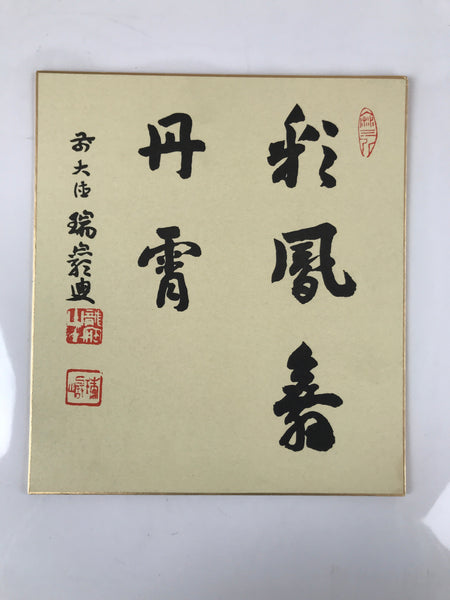 彩鳳舞
丹霄
前大徳瑞巖